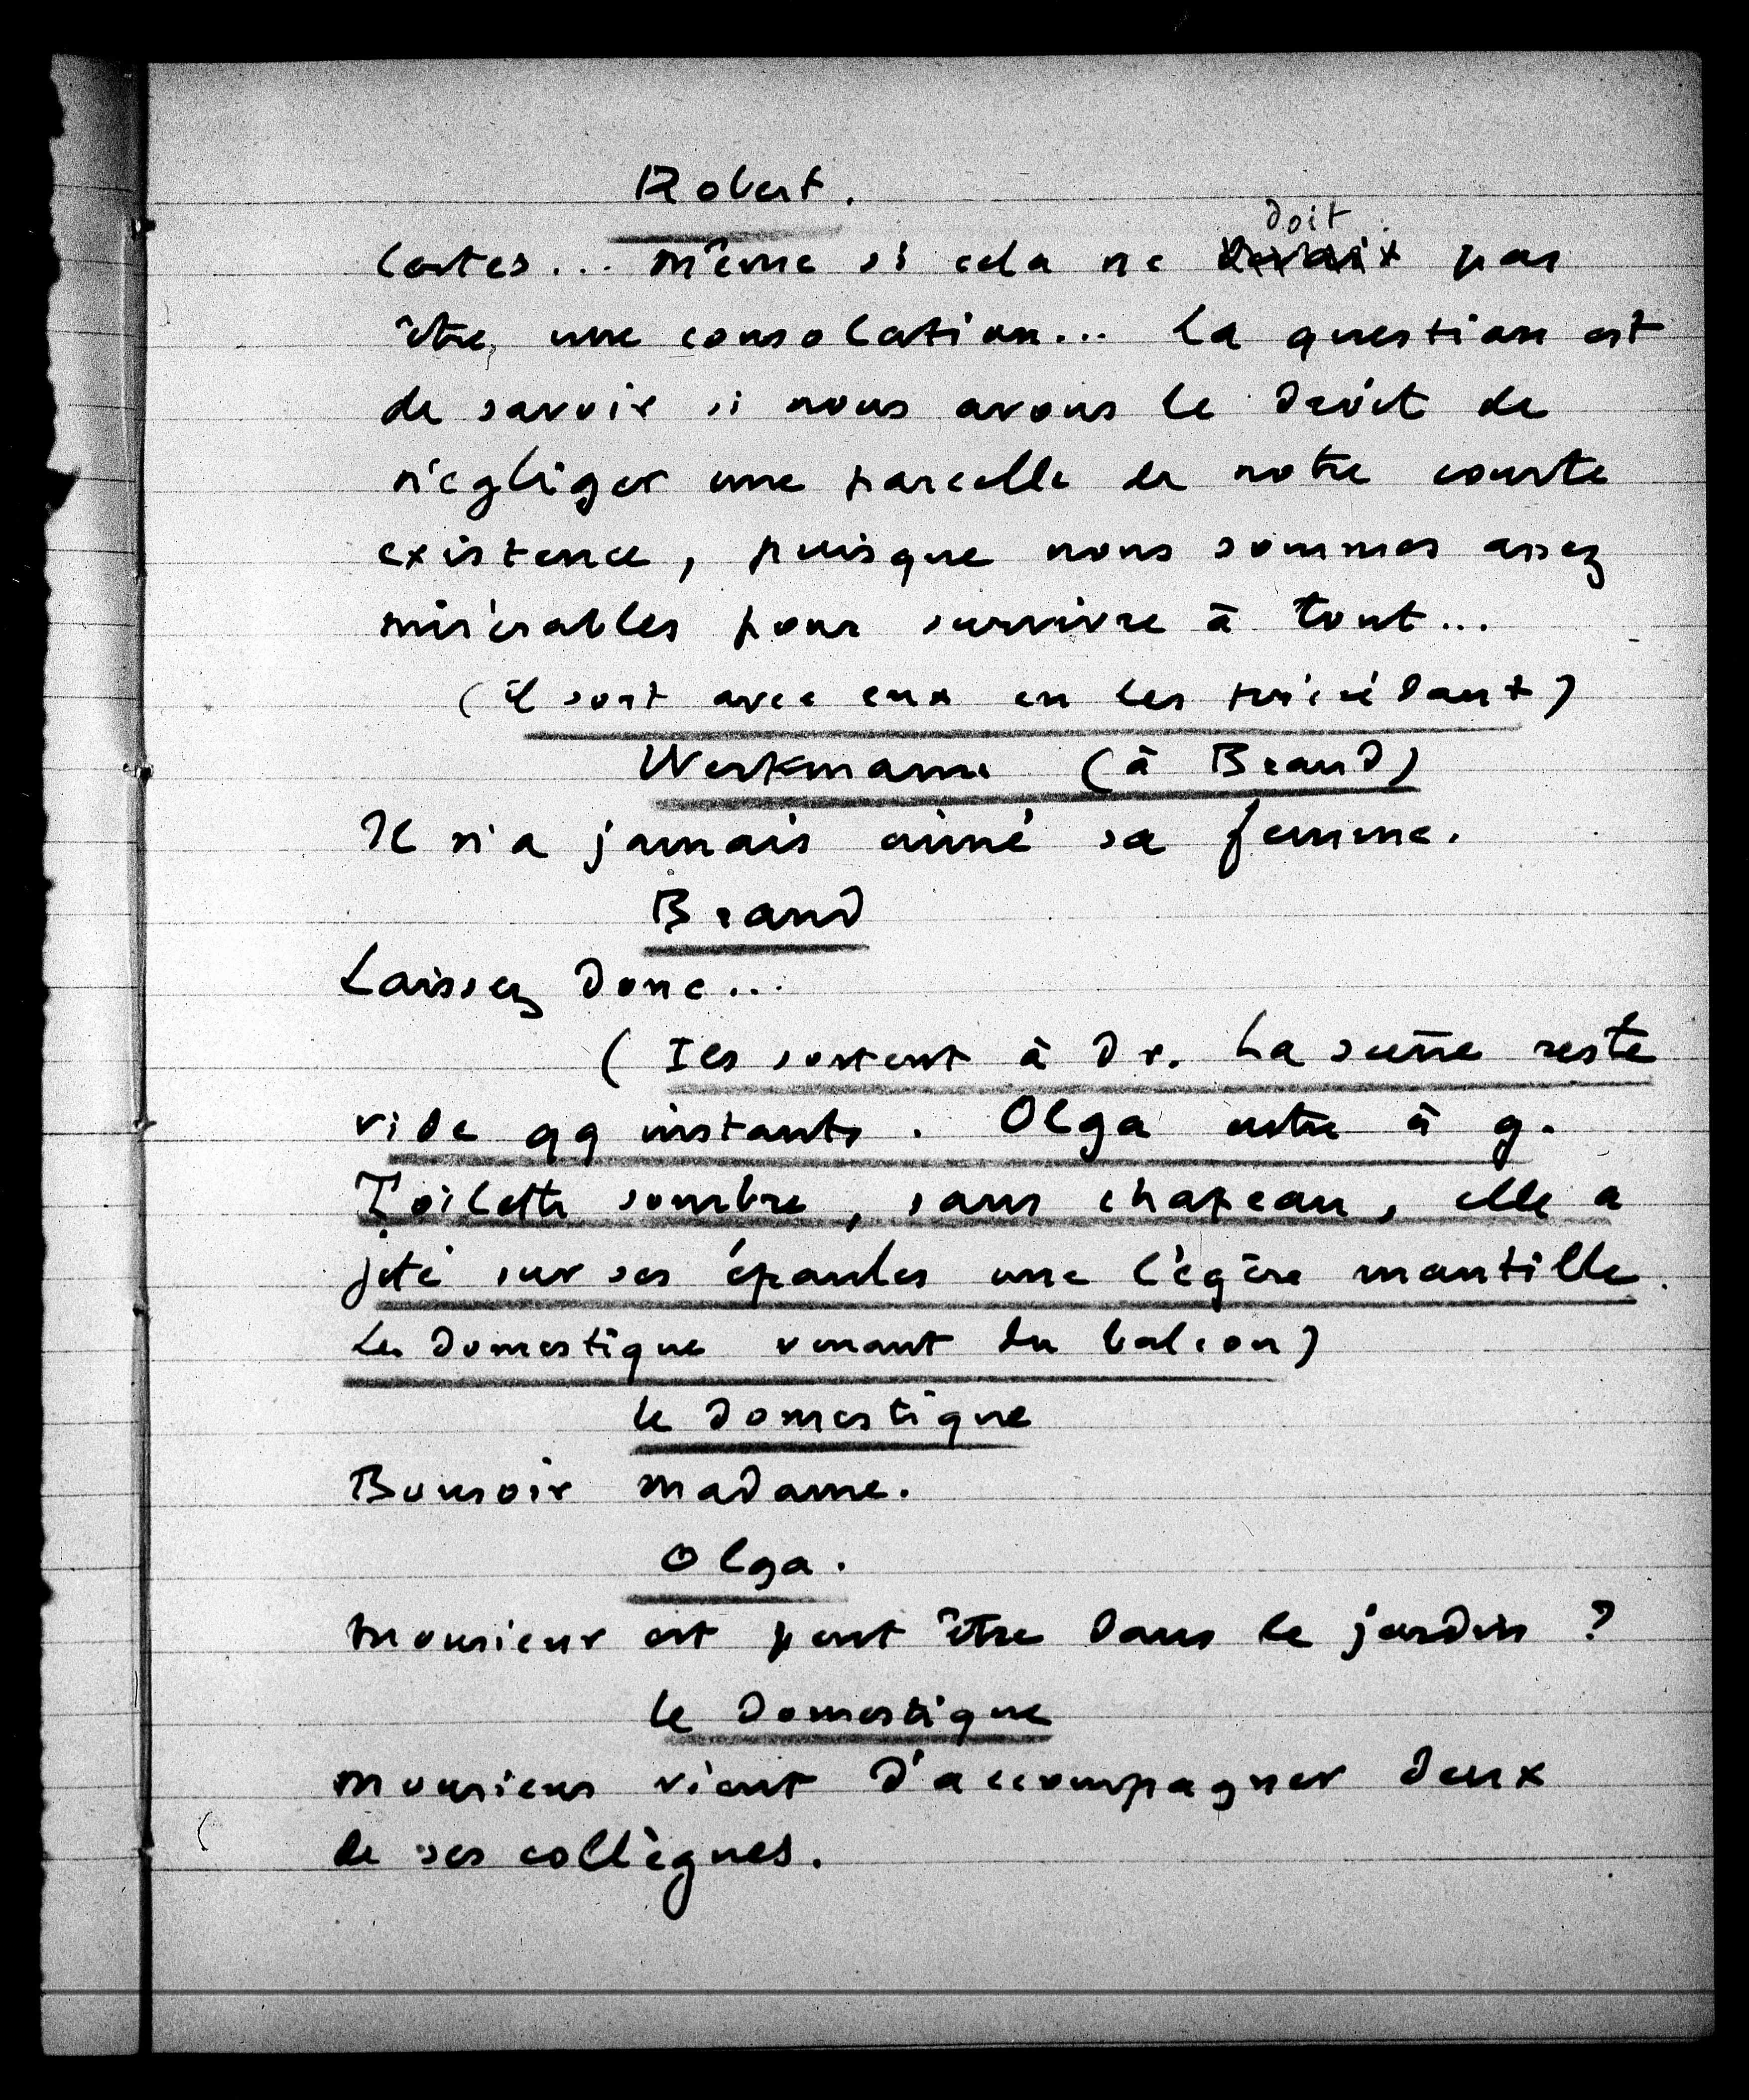 Robert.
doit
Certes... même si cela ne devait pas
être, une consolation... la question est
de savoir si nous avons le droit de
négliger une parcelle de notre courte
existence, puisque nous sommes assez
misérables pour survivre à tout...
(il sort avec eux en les précédant)
Werkmann (à Brand)
Il n'a jamais aimé sa femme.
Brand
Laissez donc...
(Ils sortent à dr. La scène reste
vide qq instants. Olga entre à g.
Toilette sombre, sans chapeau, elle a
jeté sur ses épaules une légère mantille.
Le domestique venant du balcon)
le domestique
Bonsoir madame.
Olga.
Monsieur est peut être dans le jardin ?
le domestique
Monsieur vient d'accompagner deux
de ses collègues.